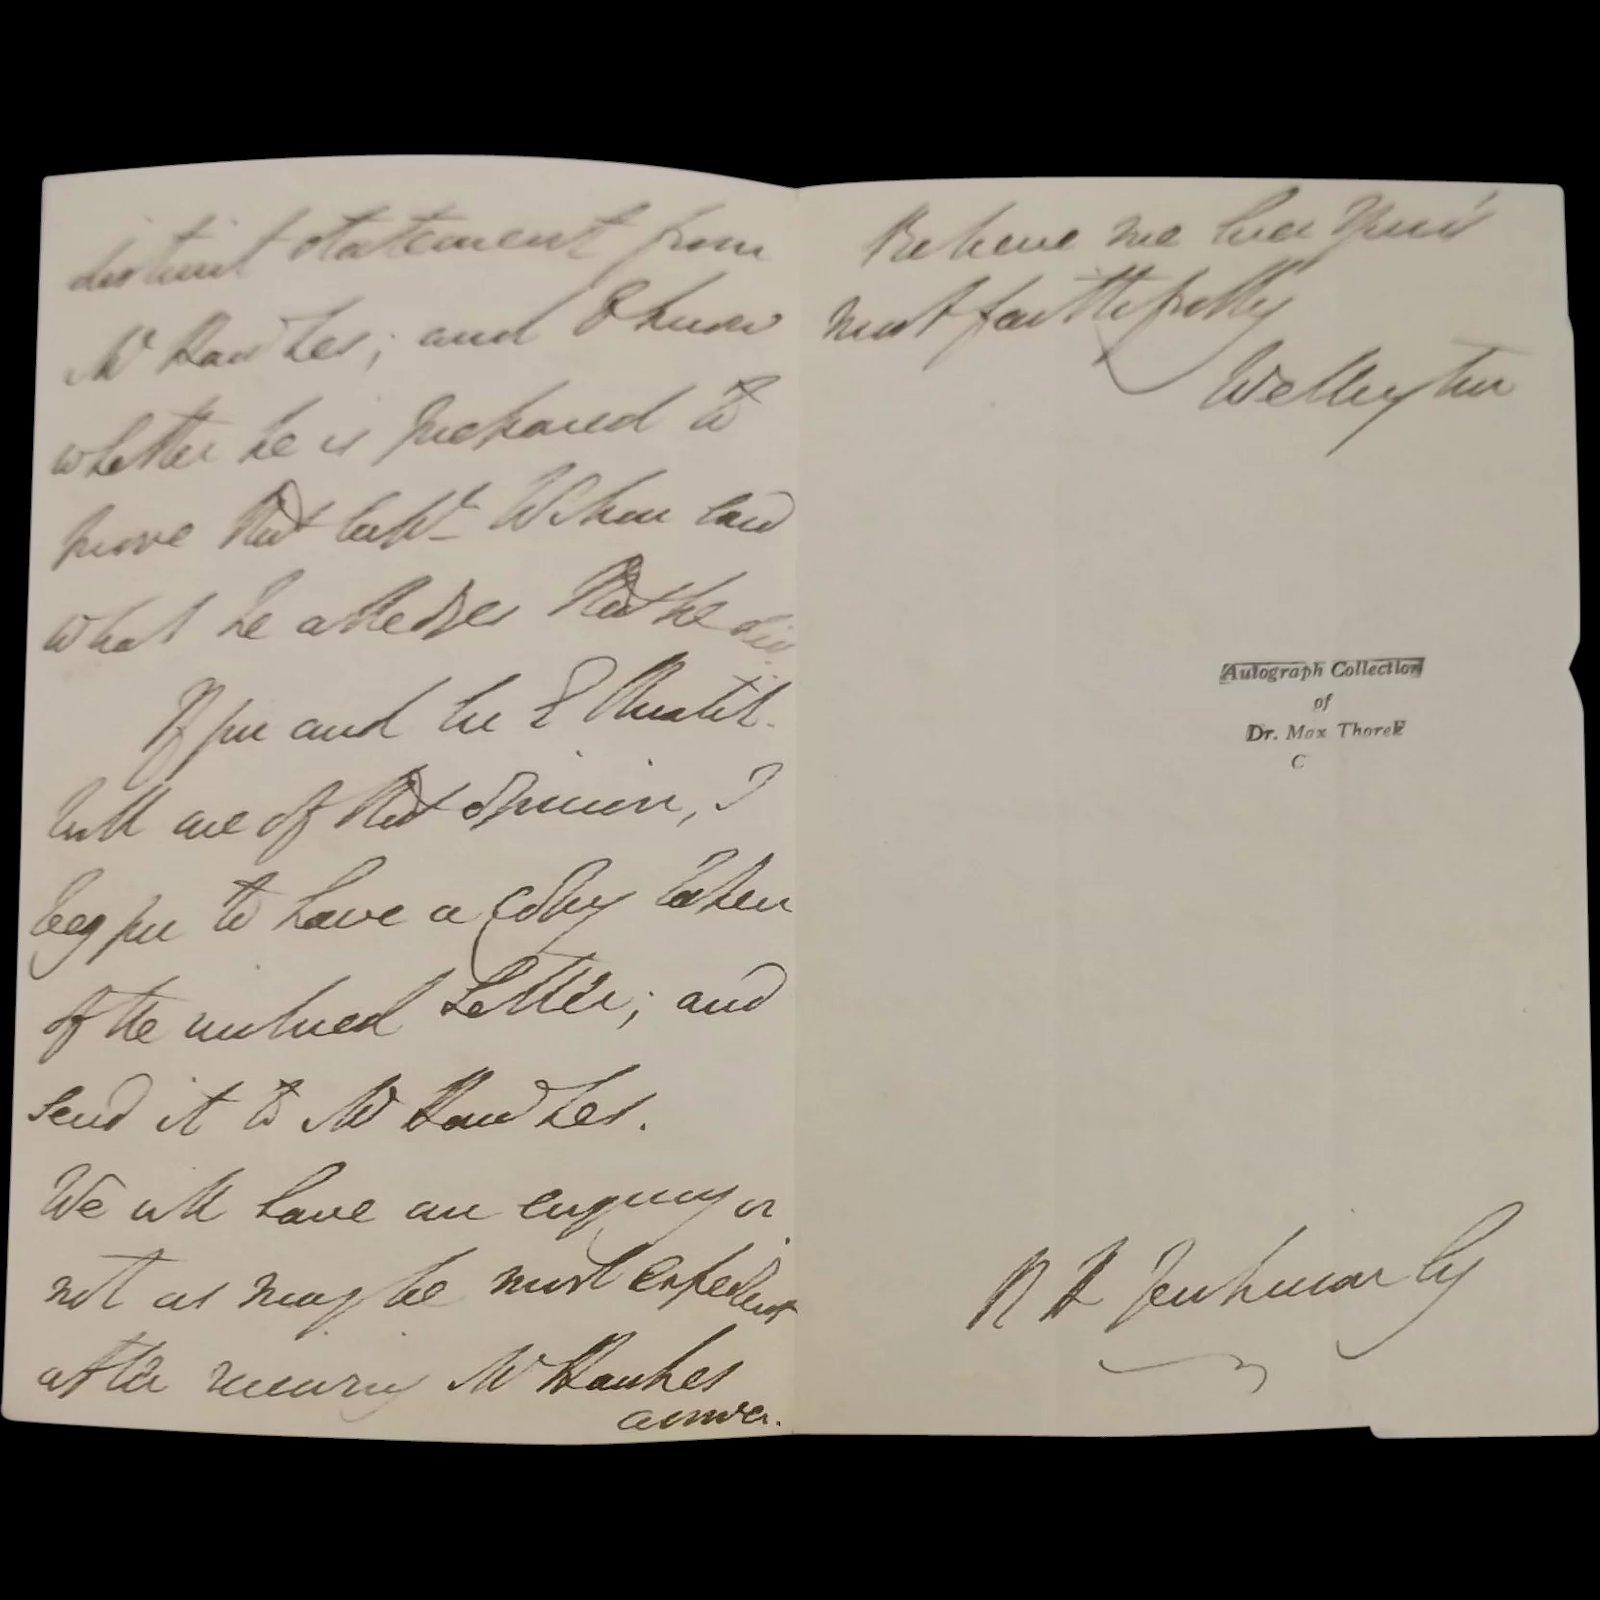 distinct statement from
Mr Hawkes; and I know
whether he is prepared to
prove that Capt. Wshaw said
what he alledges that he did
If you and Mr E
will are of that opinion, I
beg you to have a copy taken
of the inclosed Letter; and
send it to Mr Hawkes.
We will have an enquiry or
not as may be most expedient
after receiving Mr Hawkes
answer.
Believe me Ever Yours
most faithfully
Wellington
Autograph Collection
of
Dr. Max Thorek
C
R H Jenkinson Esq